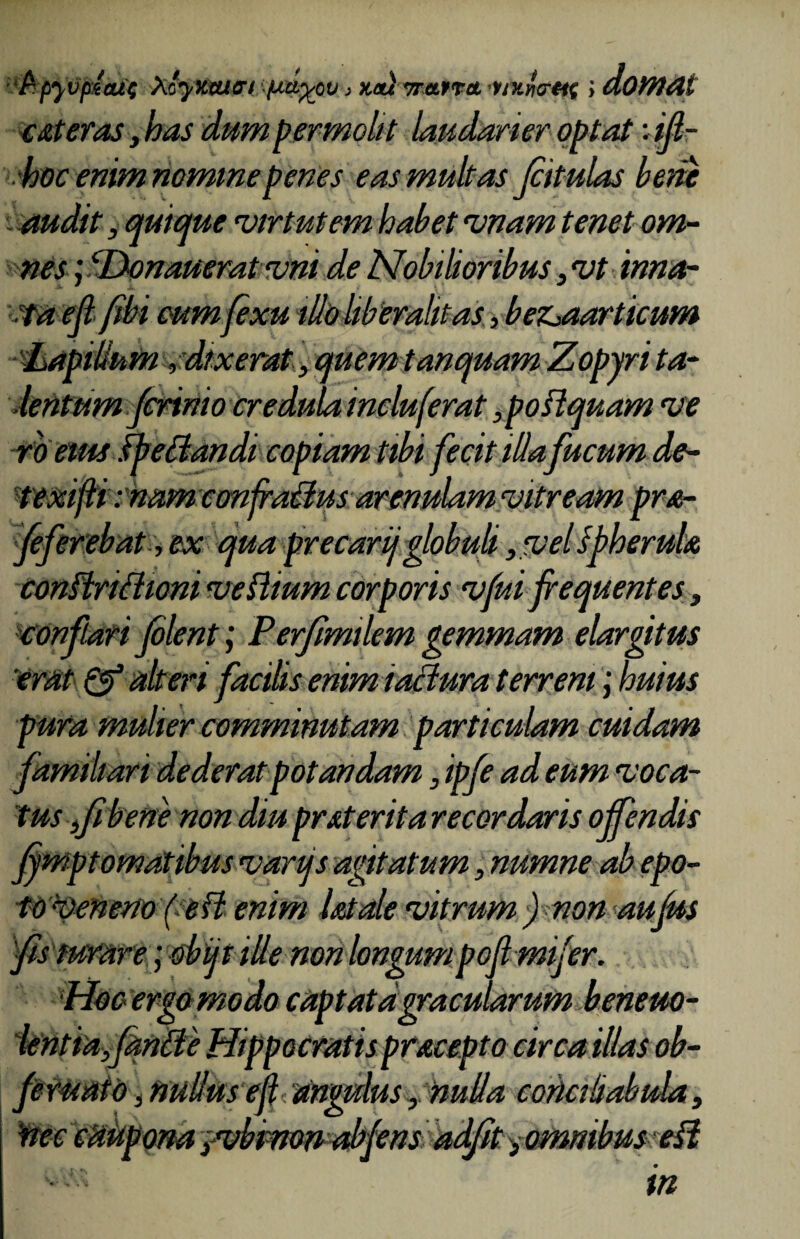 Ἀργυρέαις λόγχαισι μάχου, καὶ πάντα νικήσεις; domat
cæteras, has dum permolit laudarier optat: iſt-
hoc enim nomine penes eas multas ſcitulas bene
audit, quique virtutem habet vnam tenet om-
nes; Donauerat vni de Nobilioribus, vt inna-
ta eſt ſibi cum ſexu illo liberalitas, bezaarticum
Lapillum, dixerat, quem tanquam Zopyri ta-
lentum ſcrinio credula incluſerat, poſtquam ve
ro eius ſpectandi copiam tibi fecit illa fucum de-
texiſti: nam confractus arenulam vitream præ-
ſeferebat, ex qua precarij globuli, vel ſpherulæ
conſtrictioni veſtium corporis vſui frequentes,
conflari ſolent; Perſimilem gemmam elargitus
erat & alteri facilis enim iactura terreni; huius
pura mulier comminutam particulam cuidam
familiari dederat potandam, ipſe ad eum voca-
tus, ſi bene non diu præterita recordaris offendis
ſymptomatibus varijs agitatum, numne ab epo-
to veneno (eſt enim lætale vitrum) non auſus
ſis iurare; obijt ille non longum poſt miſer.
Hoc ergo modo captata gracularum beneuo-
lentia, ſancte Hippocratis præcepto circa illas ob-
ſeruato, nullus eſt angulus, nulla conciliabula,
nec caupona, vbi non abſens adſit, omnibus eſt
in